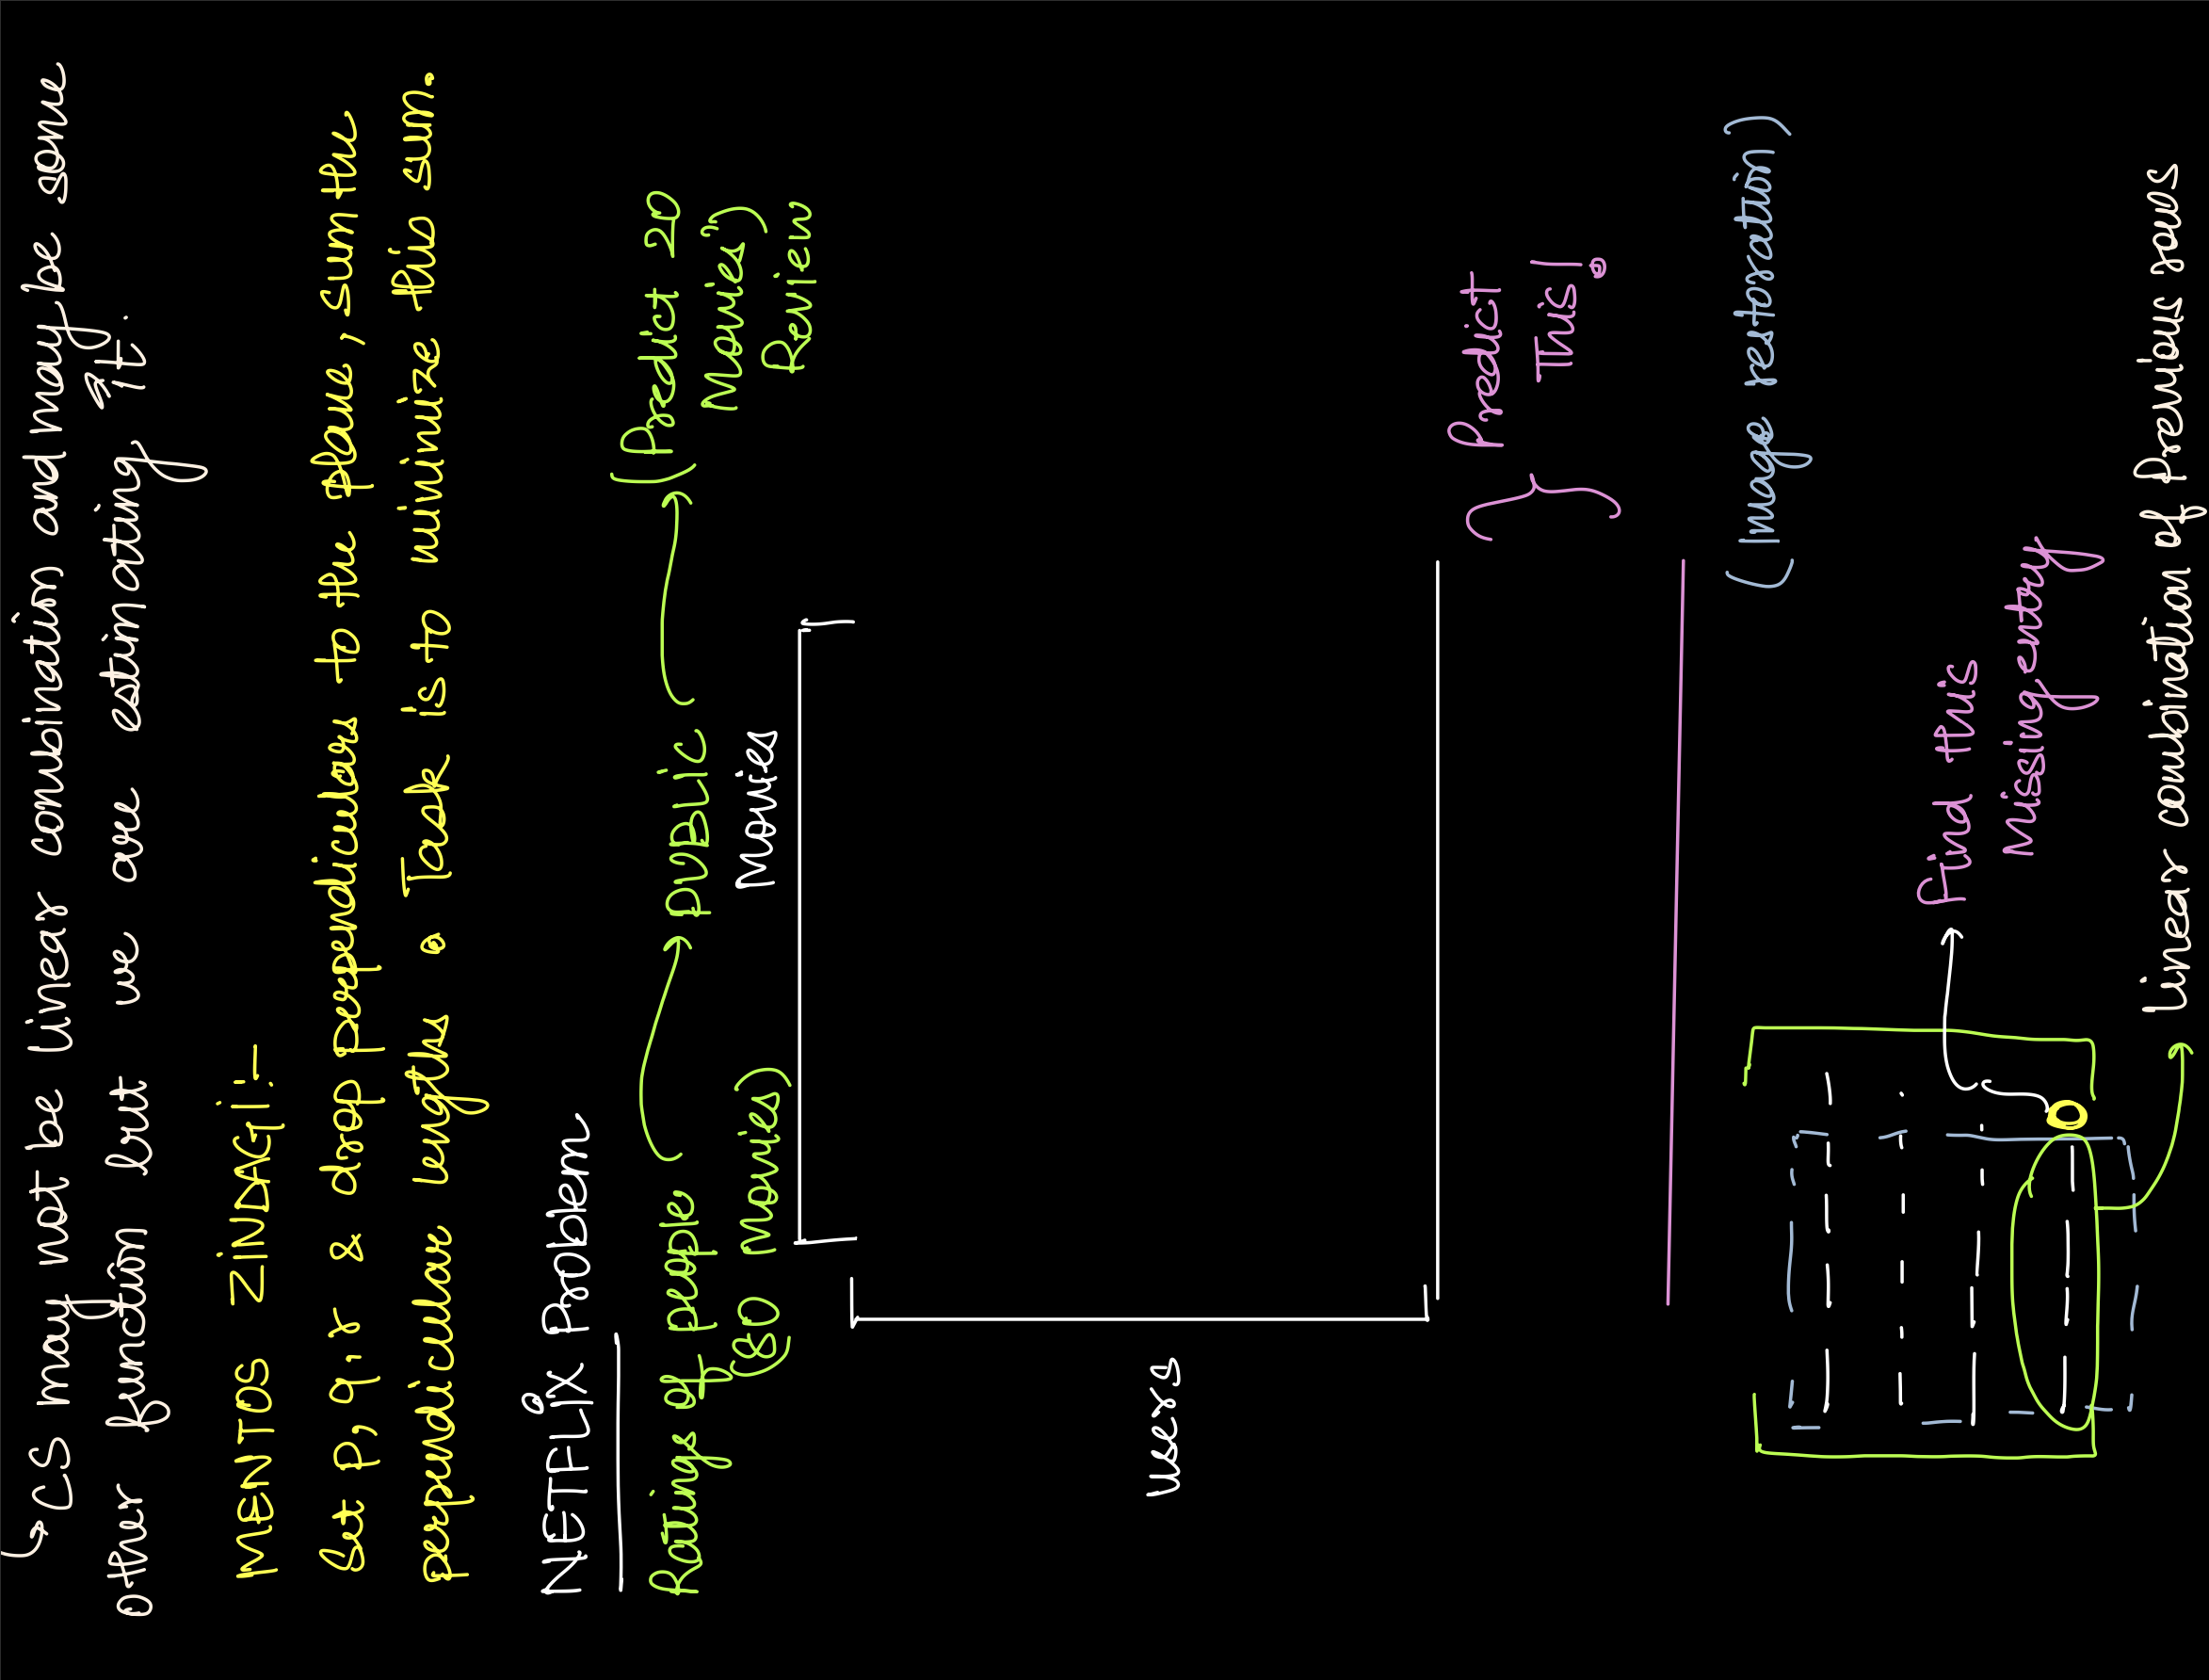 ↳ CS may not be linear combination and may be some
other function but we are estimating it.
MENTOS ZINDAGI:-
Set p, q, r & drop perpendiculars to the plane, sum the
perpendicular lengths. Task is to minimize this sum.
NETFLIX Problem
Ratings of people → PUBLIC → (Predict 20
(80 movies)
Movies")
Review
Movies
users
} Predict
This!
(Image restoration)
Find this
Missing entry
linear combination of Previous rows